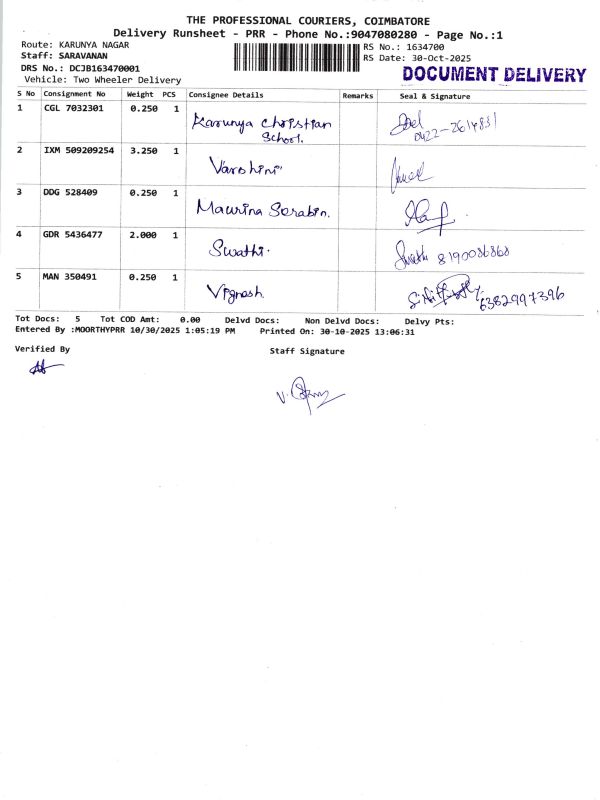 THE PROFESSIONAL COURIERS, COIMBATORE
Delivery Runsheet - PRR - Phone No.:9047080280 - Page No.:1
Route: KARUNYA NAGAR
RS No.: 1634700
Staff: SARAVANAN
RS Date: 30-Oct-2025
DRS No.: DCJB163470001
DOCUMENT DELIVERY
Vehicle: Two Wheeler Delivery
S No Consignment No Weight PCS Consignee Details Remarks Seal & Signature
1 CGL 7032301 0.250 1 Karunya Christian
School.
0422-2614831
2 IXM 509209254 3.250 1 Varshini
3 DDG 528409 0.250 1 Maurina Serabin.
4 GDR 5436477 2.000 1 Swathi. Swathi 8190086868
5 MAN 350491 0.250 1 Vignesh 6382997396
Tot Docs: 5 Tot COD Amt: 0.00 Delvd Docs: Non Delvd Docs: Delvy Pts:
Entered By :MOORTHYPRR 10/30/2025 1:05:19 PM Printed On: 30-10-2025 13:06:31
Verified By Staff Signature